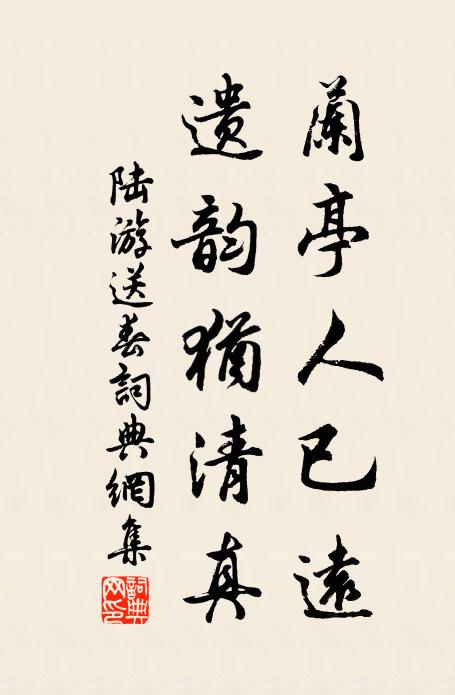 蘭亭人已遠
遺韵猶清真
陆游送春詞典網集
詞典网印